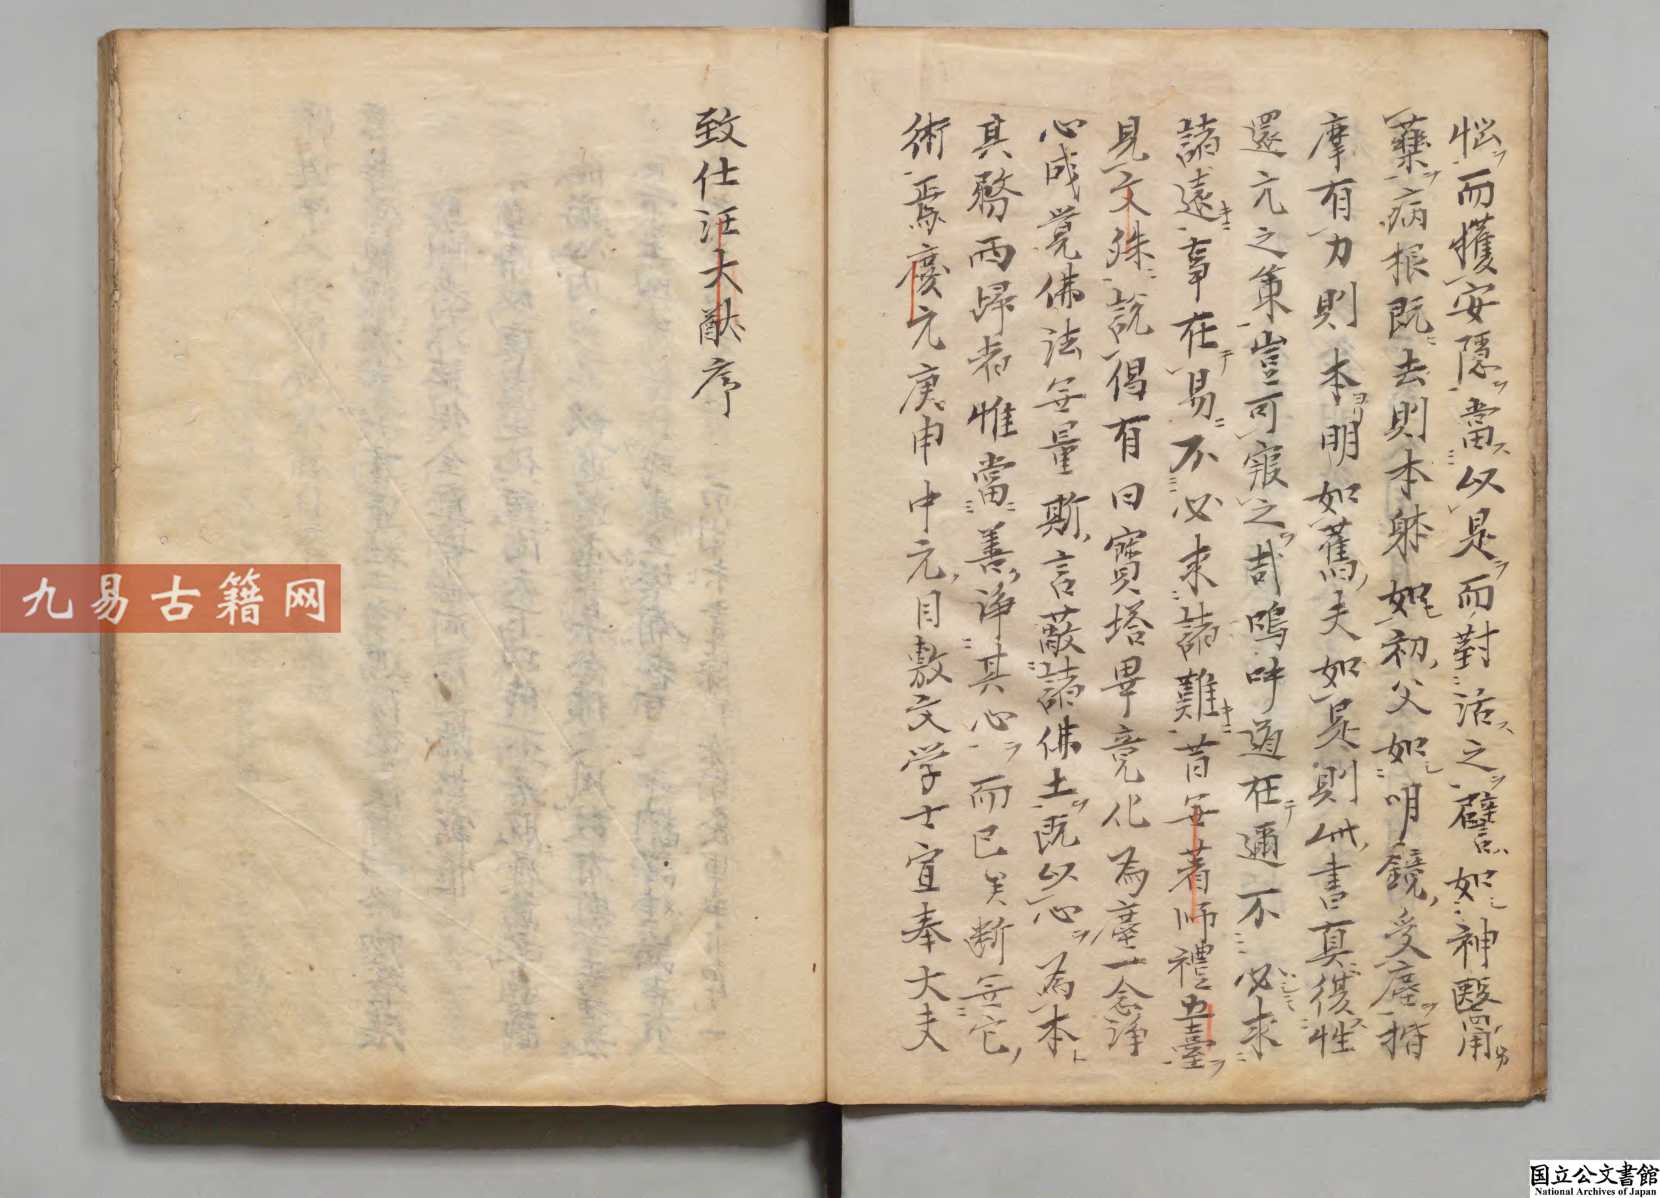 惱而獲安隱當以是而對治之譬如神醫用
藥病根既去則本躰如初父如明鏡受塵揩
摩有力則本明如舊夫如是則此書真復性
還元之策豈可寂之哉嗚呼道在邇不必求
諸遠事在易不必求諸難昔無著師禮五臺
見文殊說偈有曰寶塔畢竟化為塵一念淨
心成覺佛法無量斯言蔽諸佛土既以心為本
其務而歸者惟當善淨其心而已矣斷無它
術焉慶元庚申中元日敷文学士宣奉大夫
致仕汪大猷序
九易古籍网
国立公文書館
National Archives of Japan